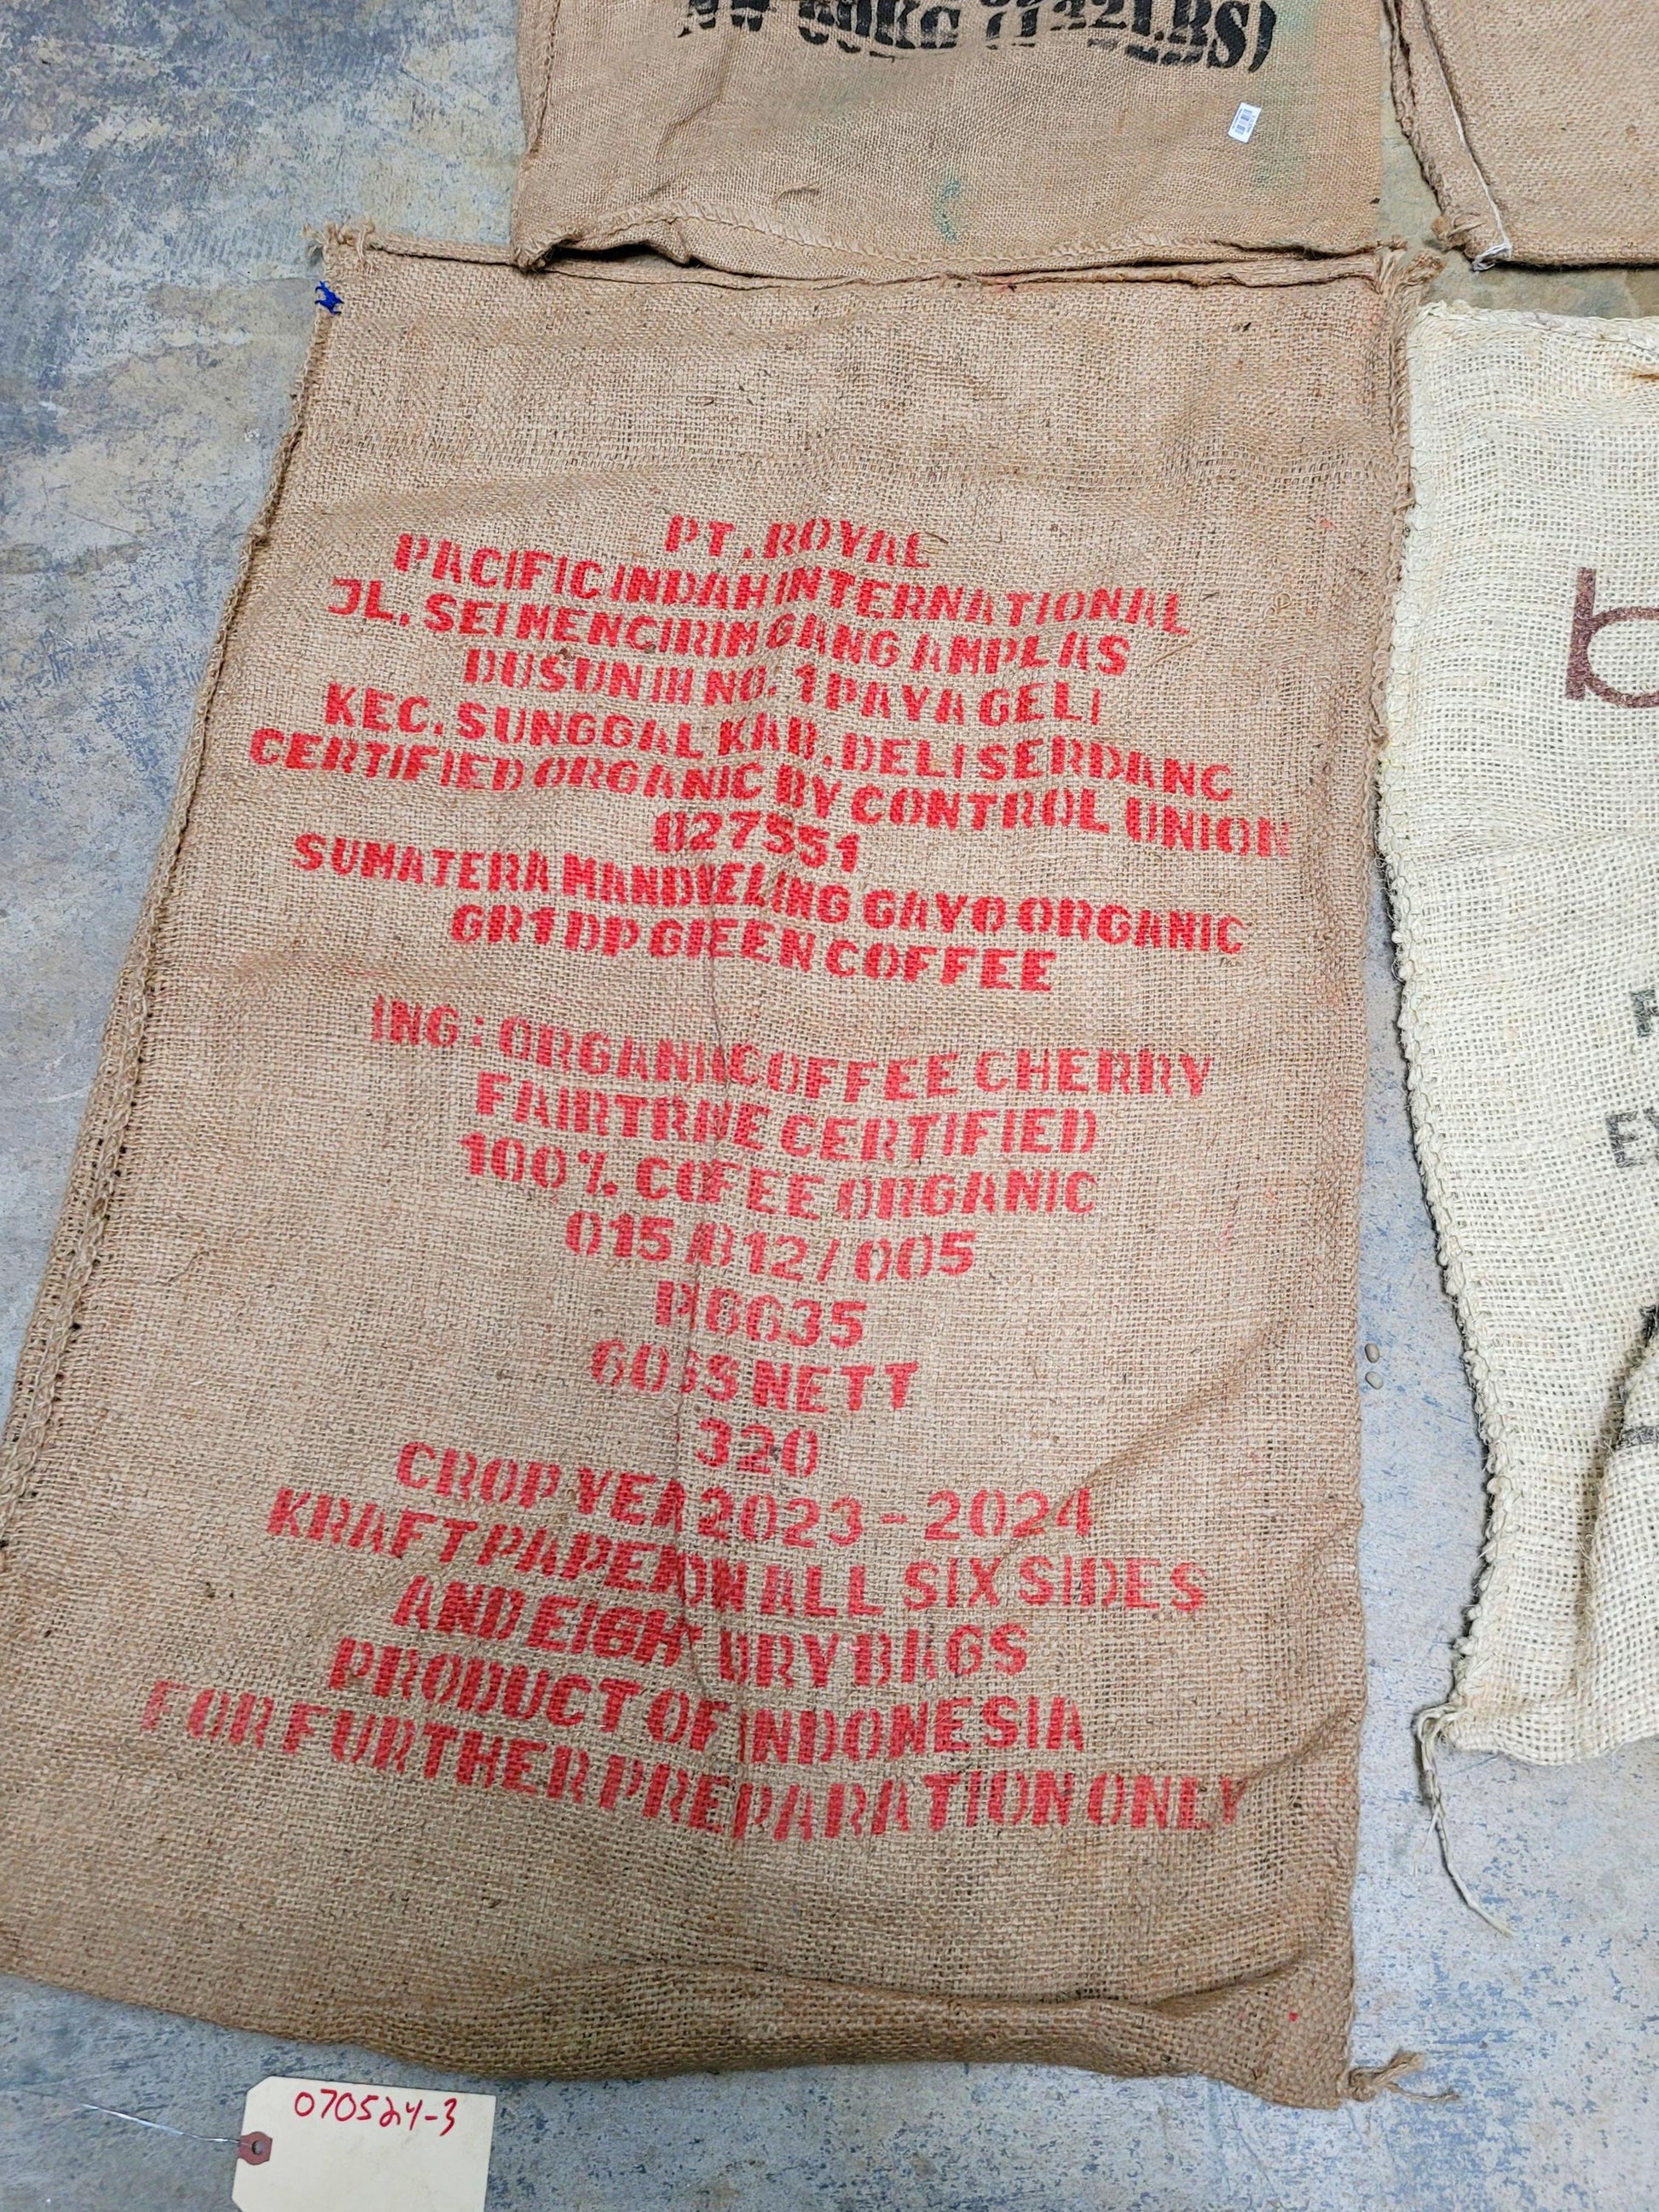 NW 60KG (132LBS)
PT. ROYAL
PACIFIC INDAH INTERNATIONAL
JL. SEI MENCIRIM GANG AMPLAS
DUSUN III NO. 1 PAYA GELI
KEC. SUNGGAL KAB. DELI SERDANG
CERTIFIED ORGANIC BY CONTROL UNION
827551
SUMATERA MANDHELING GAYO ORGANIC
GR1 DP GREEN COFFEE
ING : ORGANIC COFFEE CHERRY
FAIRTRADE CERTIFIED
100% COFFEE ORGANIC
015/012/005
P6635
NETT
320
CROP YEAR 2023 - 2024
KRAFT PAPER ON ALL SIX SIDES
AND EIGHT DRY BAGS
PRODUCT OF INDONESIA
FOR FURTHER PREPARATION ONLY
070524-3